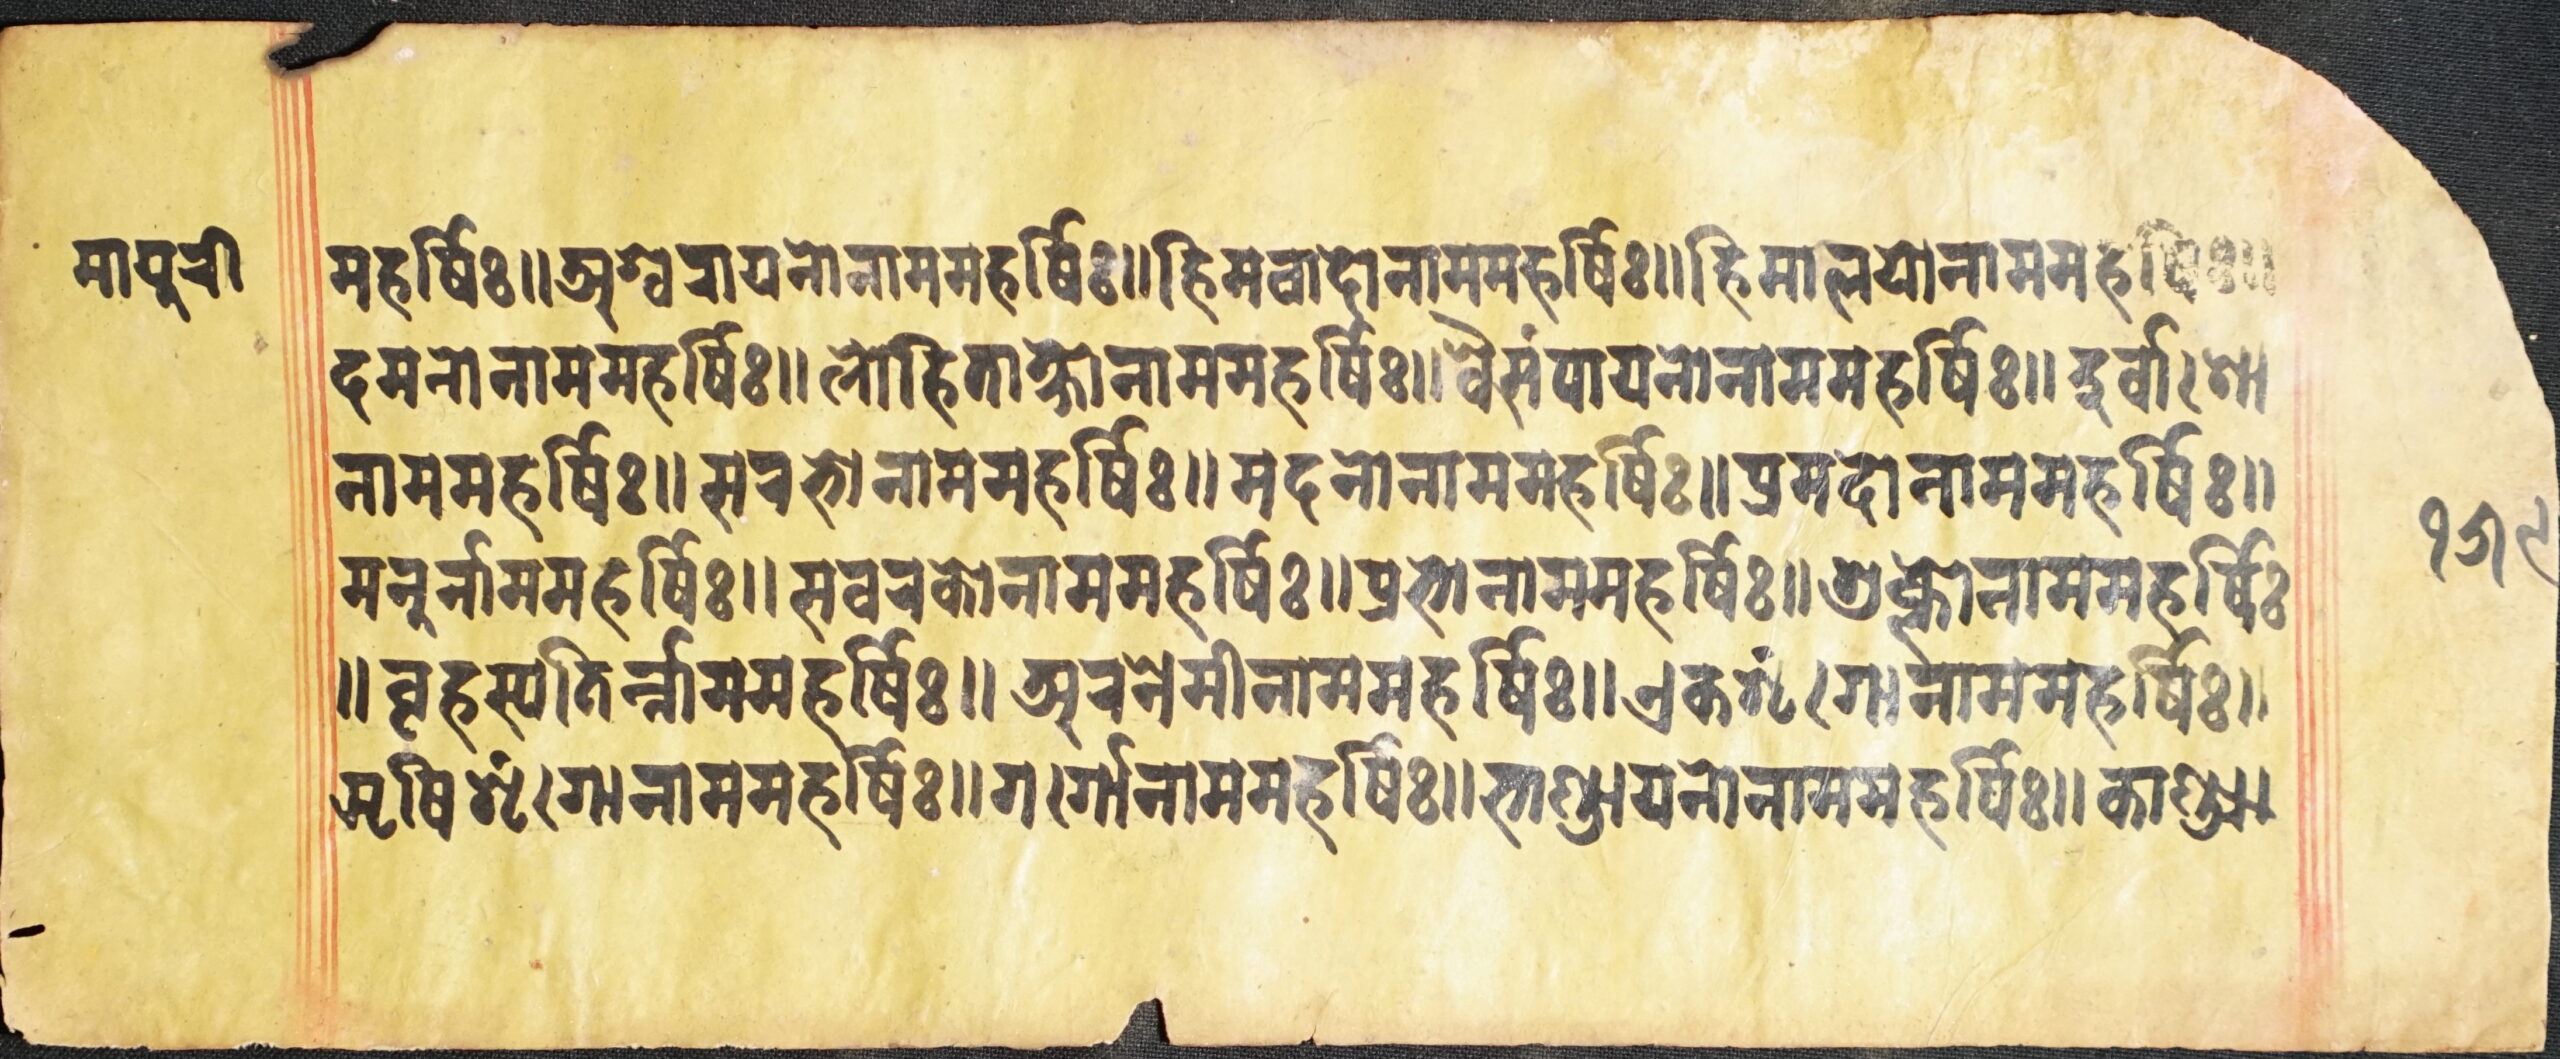 मायुरी
महर्षिः॥अश्वरायनोनाममहर्षिः॥हिमवादोनाममहर्षिः॥हिमालयोनाममहर्षिः॥
दमनोनाममहर्षिः॥लोहिताक्षोनाममहर्षिः॥वैसंपायनोनाममहर्षिः॥दुर्वाशा
नाममहर्षिः॥सरभोनाममहर्षिः॥मदनोनाममहर्षिः॥प्रमदोनाममहर्षिः॥
मनुर्नाममहर्षिः॥सवरकोनाममहर्षिः॥प्रभोनाममहर्षिः॥शुक्लोनाममहर्षिः
॥बृहस्पतिर्न्नाममहर्षिः॥अरनेमीनाममहर्षिः॥एकशृंगोनाममहर्षिः॥
ऋषिशृंगोनाममहर्षिः॥गर्गोनाममहर्षिः॥भाण्डायनोनाममहर्षिः॥काण्ड्या